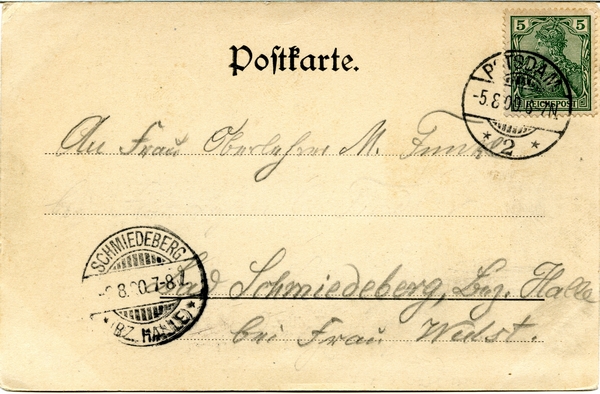 Postkarte.
5 5
REICHSPOST
POTSDAM
-5.8.00.
* 2 *
An Frau Oberlehrer M.
SCHMIEDEBERG
8.00.7-8
* (BZ. HALLE) *
Bad Schmiedeberg, Bez. Halle
bei Frau Wust.